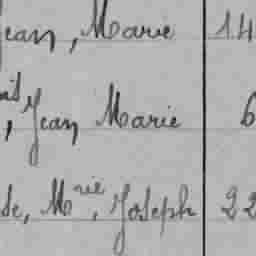 Jean, Marie 14
, Jean Marie 6
de, Mie, Joseph 22